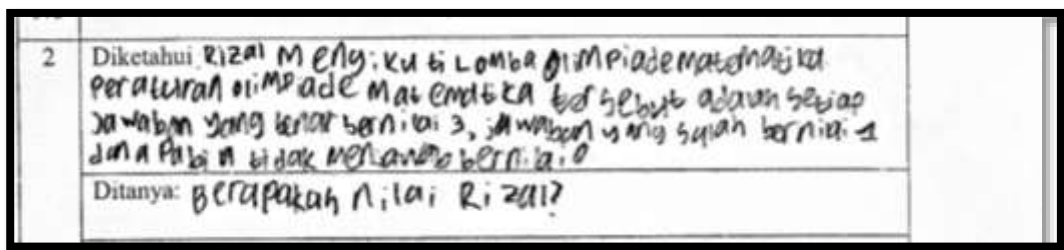 2 Diketahui Rizal Mengikuti Lomba olimpiade matematika
Peraturan olimpiade Matematika tersebut adalah setiap
Jawaban yang benar bernilai 3, jawaban yang salah bernilai 1
dan apabila tidak menjawab bernilai 0
Ditanya: Berapakah nilai Rizal?